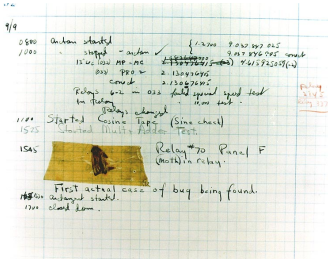 9/9
0800 antan started
1000 " stopped - antan ✓ { 1.2700 9.037 847 025
9.037 846 995 correct
13" uc (032) MP - MC 4.615925059(-2)
(033) PRO 2 2.130476415
correct 2.130676415
Relays 6-2 in 033 failed special speed test
in Relay " 10.000 test.
Relays changed
1100 Started Cosine Tape (Sine check)
1525 Started Multi Adder Test.
1545 Relay #70 Panel F
(Moth) in relay.
First actual case of bug being found.
1630 antangent started.
1700 closed down.